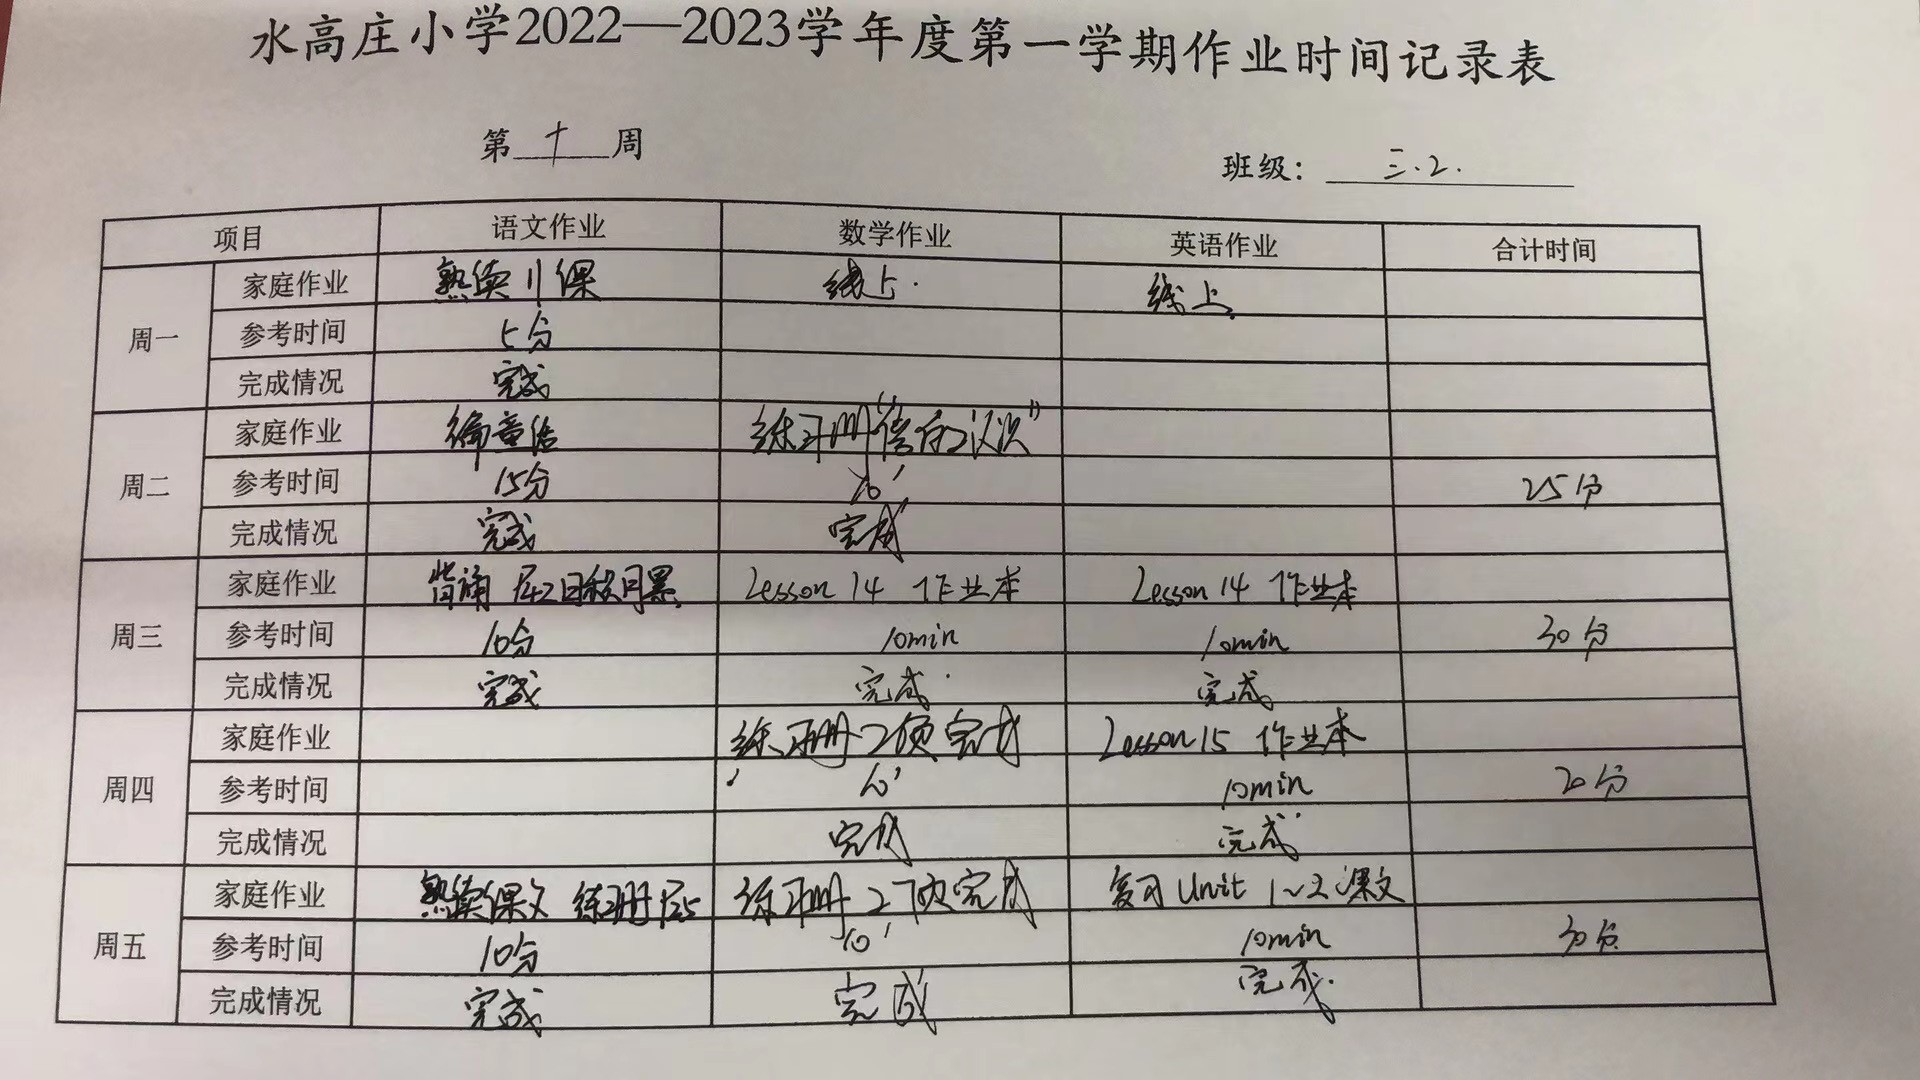 水高庄小学2022—2023学年度第一学期作业时间记录表
第 十 周
班级： 三.2.
项目 语文作业 数学作业 英语作业 合计时间
周一
家庭作业 熟读11课 线上. 线上.
参考时间 5分
完成情况 完成
周二
家庭作业 编童话 练习册“倍的认识”
参考时间 15分 10′ 25分
完成情况 完成 完成
周三
家庭作业 背诵 日积月累 Lesson 14 作业本 Lesson 14 作业本
参考时间 10分 10min 10min 30分
完成情况 完成 完成. 完成
周四
家庭作业 练习册 2页完成 Lesson 15 作业本
参考时间 10′ 10min 20分
完成情况 完成 完成
周五
家庭作业 熟读课文 练习册 练习册 完成 复习 Unit 1~2 课文
参考时间 10分 10′ 10min 30分
完成情况 完成 完成 完成.